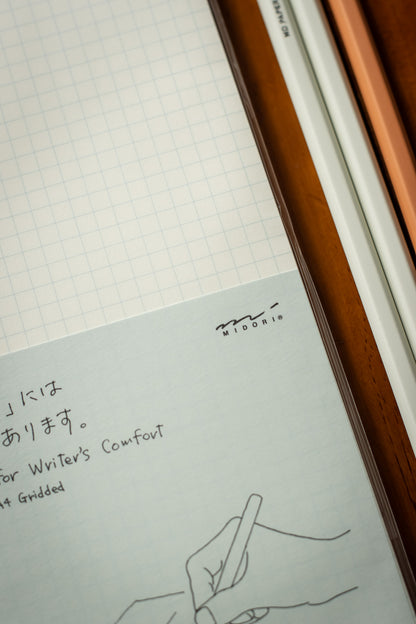 MIDORI®
」には
あります。
for Writer's Comfort
A4 Gridded
MD PAPER